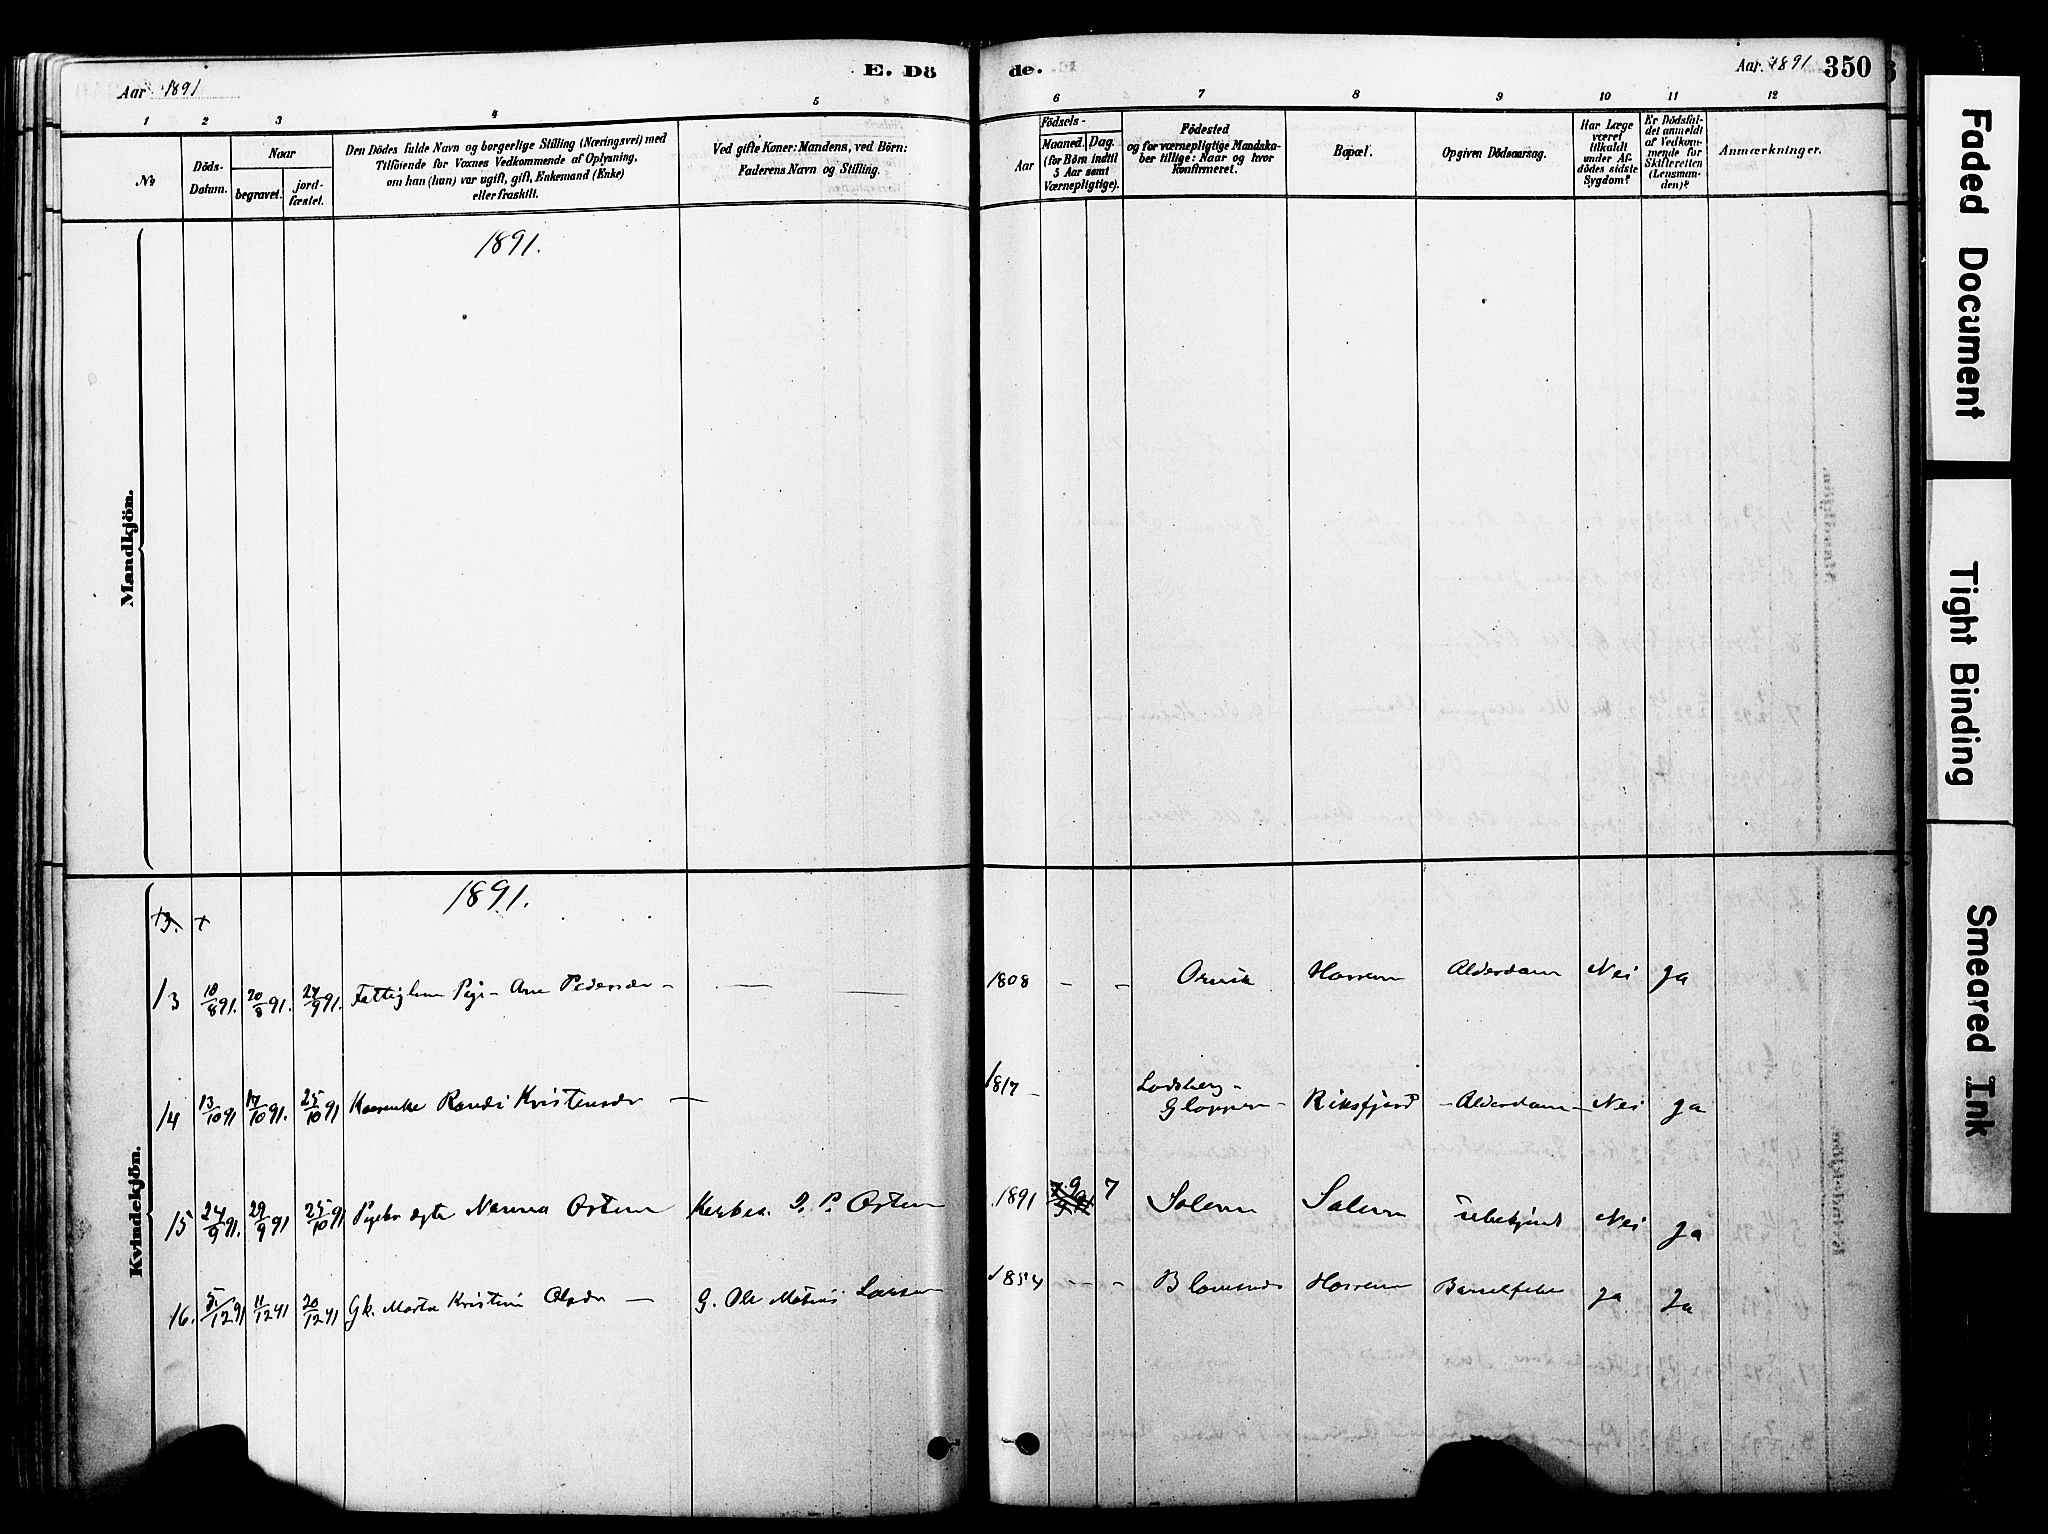 Aar 1891
E. Dö
de.
Aar. 1891
350
1 2 3 4 5 6 7 8 9 10 11 12
No
Döds-
Datum.
Naar
begravet.
jord-
fæstet.
Den Dödes fulde Navn og borgerlige Stilling (Næringsvei) med
Tilföiende for Voxnes Vedkommende af Oplysning,
om han (hun) var ugift, gift, Enkemand (Enke)
eller fraskilt.
Ved gifte Koner: Mandens, ved Börn:
Faderens Navn og Stilling.
Födsels-
Aar
Maaned.
Dag.
(for Börn indtil
5 Aar samt
Værnepligtige).
Födested
og for værnepligtige Mandska-
ber tillige: Naar og hvor
konfirmeret.
Bopæl.
Opgiven Dödsaarsag.
Har Læge
været
tilkaldt
under Af-
dödes sidste
Sygdom?
Er Dödsfal-
det anmeldt
af Vedkom-
mende for
Skifteretten
(Lensman-
den)?
Anmærkninger.
Mandkjön.
1891.
Kvindekjön.
1891.
13 18/8 91. 20/8 91. 27/9 91. Pige - Pedersdr - 1808 - - Alderdom Nei Ja
14 13/10 91 17/10 91. 25/10 91 Randi Kristensdr - 1817 - Gloppen - Riksfjord - Alderdom - Nei Ja
15 24/9 91. 29/9 91 25/10 91 Pigebn ægte Nanna Osten P. Osten 1891 9 7 Nei Ja
16. 5/12 91 11/12 91 20/12 91 Gk. Marta Kristine Olsdr - G. Ole Larsen 1854 - - Barselfeber Ja Ja
Faded Document
Tight Binding
Smeared Ink